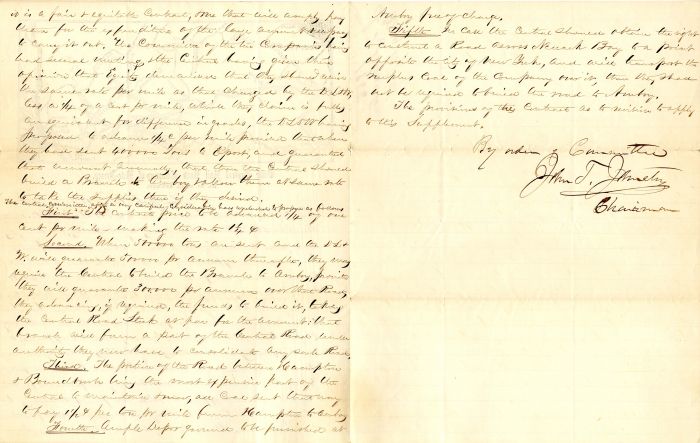 is a fair & equitable Contract, one that will amply pay
them for the expenditure of the large amount
to carry it out. The Committee of the two Companies having
had several meetings the Central being given their
opinion that Equity demands that they should receive
the same rate per mile as that charged by the D L & W
less a 1/4 of a cent pr mile, which they claim is fully
an equivalent for difference in grades, the D L & W having
proposed to advance 1/8 c per mile provided that when
they had sent 400000 Tons to Eport, and guarantee
that amount annually, that then the Central should
build a Branch to Amboy & allow them at same rate
to take the supplies then if they desired.
The Central Committee after a very careful consideration have concluded to propose as follows
First. The contract price to be advanced 1/4 of one
cent pr mile making the rate 1 1/4 c
Second. When 500000 tons are sent and the D L &
W. will guarantee 500000 pr annum thereafter, they may
require the Central to build the Branch to Amboy, provided
they will guarantee 300.000 pr annum over that Road,
they advancing if required, the funds to build it, taking
the Central Road Stock at par for the amount; that
branch will form a part of the Central Road under
authority they now have to consolidate any such Road,
Third. The portion of the Road between Hampton
& Bound brook being the most expensive part of the
Central to maintain, all Coal sent that way
to pay 1 1/4 per ton pr mile from Hampton to Amboy
Fourth. Ample Depot ground to be furnished at
Amboy free of charge.
Fifth. In case the Central should obtain the right
to construct a Road across Newark Bay to a point
opposite the City of New York, and will transport the
surplus Coal of the Company over it, then they shall
not be required to build the road to Amboy.
The provisions of the Contract as to notice to apply
to this Supplement.
By order of Committee
John T. Johnston
Chairman